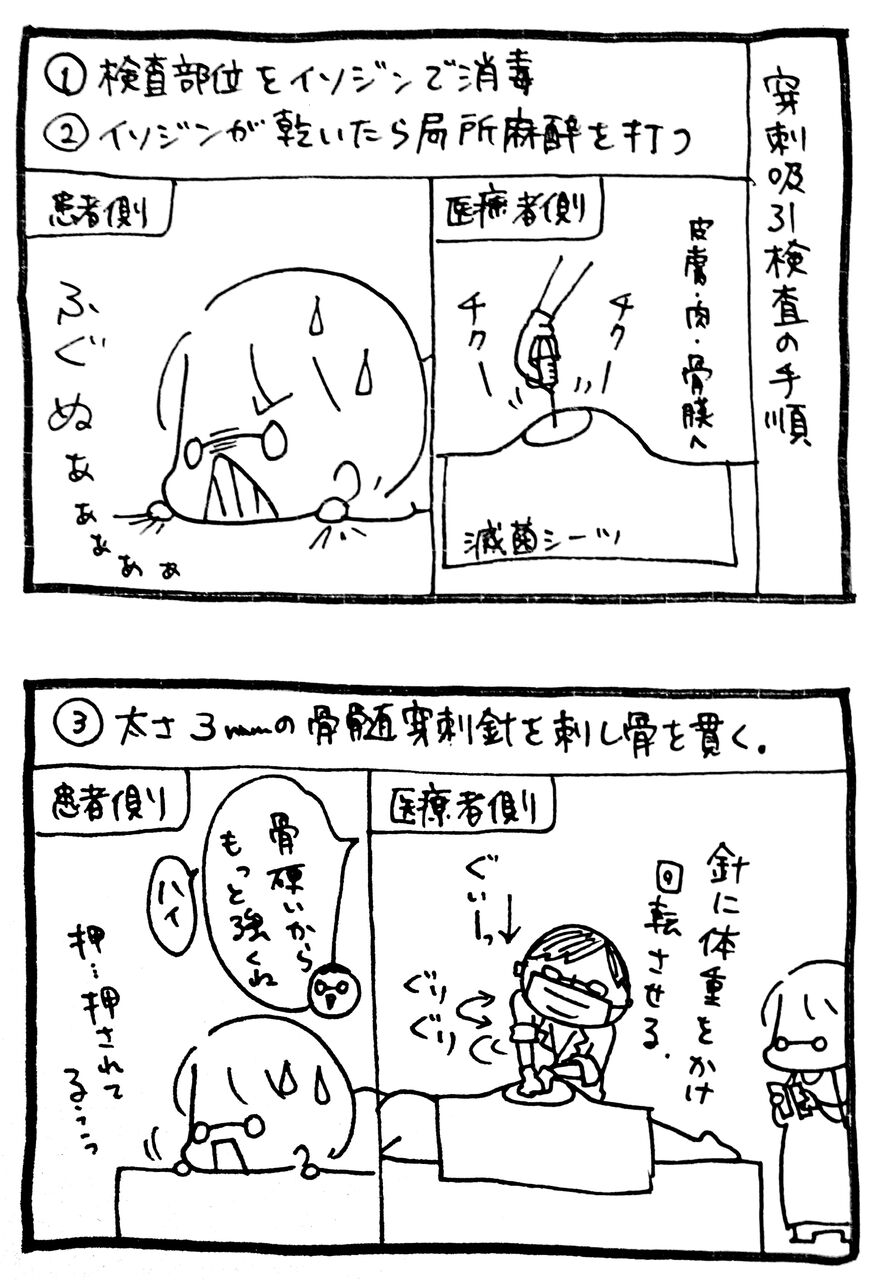 穿刺吸引検査の手順
①検査部位をイソジンで消毒
②イソジンが乾いたら局所麻酔を打つ
医療者側
皮膚・肉・骨膜へ
チクー
チクー
滅菌シーツ
患者側
ふぐぬぁぁぁぁぁ
③太さ3mmの骨髄穿刺針を刺し骨を貫く.
医療者側
針に体重をかけ
回転させる.
ぐぃーっ
ぐり
ぐり
患者側
骨硬いから
もっと強くね
ハイ
押…押されて
るぅぅっ